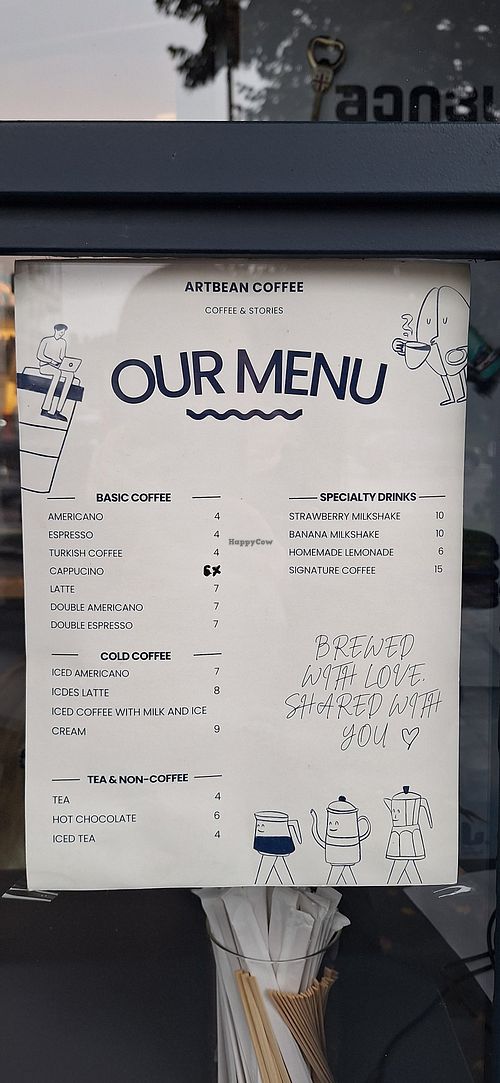 ARTBEAN COFFEE
COFFEE & STORIES
OUR MENU
BASIC COFFEE
AMERICANO 4
ESPRESSO 4
TURKISH COFFEE 4
CAPPUCINO 6
LATTE 7
DOUBLE AMERICANO 7
DOUBLE ESPRESSO 7
COLD COFFEE
ICED AMERICANO 7
ICDES LATTE 8
ICED COFFEE WITH MILK AND ICE
CREAM 9
TEA & NON-COFFEE
TEA 4
HOT CHOCOLATE 6
ICED TEA 4
SPECIALTY DRINKS
STRAWBERRY MILKSHAKE 10
BANANA MILKSHAKE 10
HOMEMADE LEMONADE 6
SIGNATURE COFFEE 15
BREWED
WITH LOVE.
SHARED WITH
YOU ♡
HappyCow